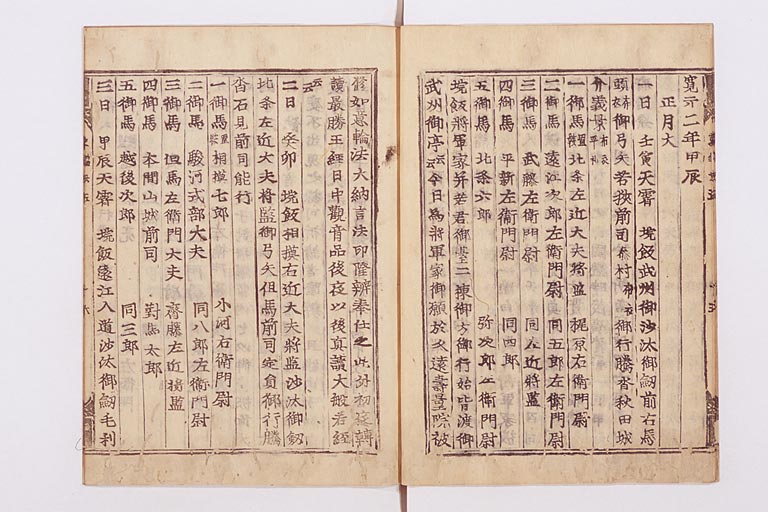 寛元二年甲辰
正月大
一日 壬寅天霽 垸飯武州御沙汰御劔前右馬
頭 御弓矢若狭前司泰村 御行騰沓秋田城
介義景
一御馬 北条左近大夫将監 梶原右衛門尉
二御馬 遠江次郎左衛門尉 同五郎左衛門尉
三御馬 武藤左衛門尉 同左近将監
四御馬 平新左衛門尉 同四郎
五御馬 北条六郎 弥次郎左衛門尉
垸飯将軍家并若君御臺二棟御方御行始皆渡御
武州御亭云云今日為将軍家御願於久遠壽量院被
修如意輪法大納言法印隆辨奉仕之此外初夜轉
讀最勝王經日中觀音品後夜以後真讀大般若經
云云
二日 癸卯 垸飯相摸右近大夫将監沙汰御劔
北条左近大夫将監御弓矢但馬前司定員御行騰
沓石見前司能行
一御馬 相摸七郎 小河右衛門尉
二御馬 駿河式部大夫 同八郎左衛門尉
三御馬 但馬左衛門大夫 齋藤左近将監
四御馬 本間山城前司 對馬太郎
五御馬 越後次郎 同三郎
三日 甲辰天霽 垸飯遠江入道沙汰御劔毛利